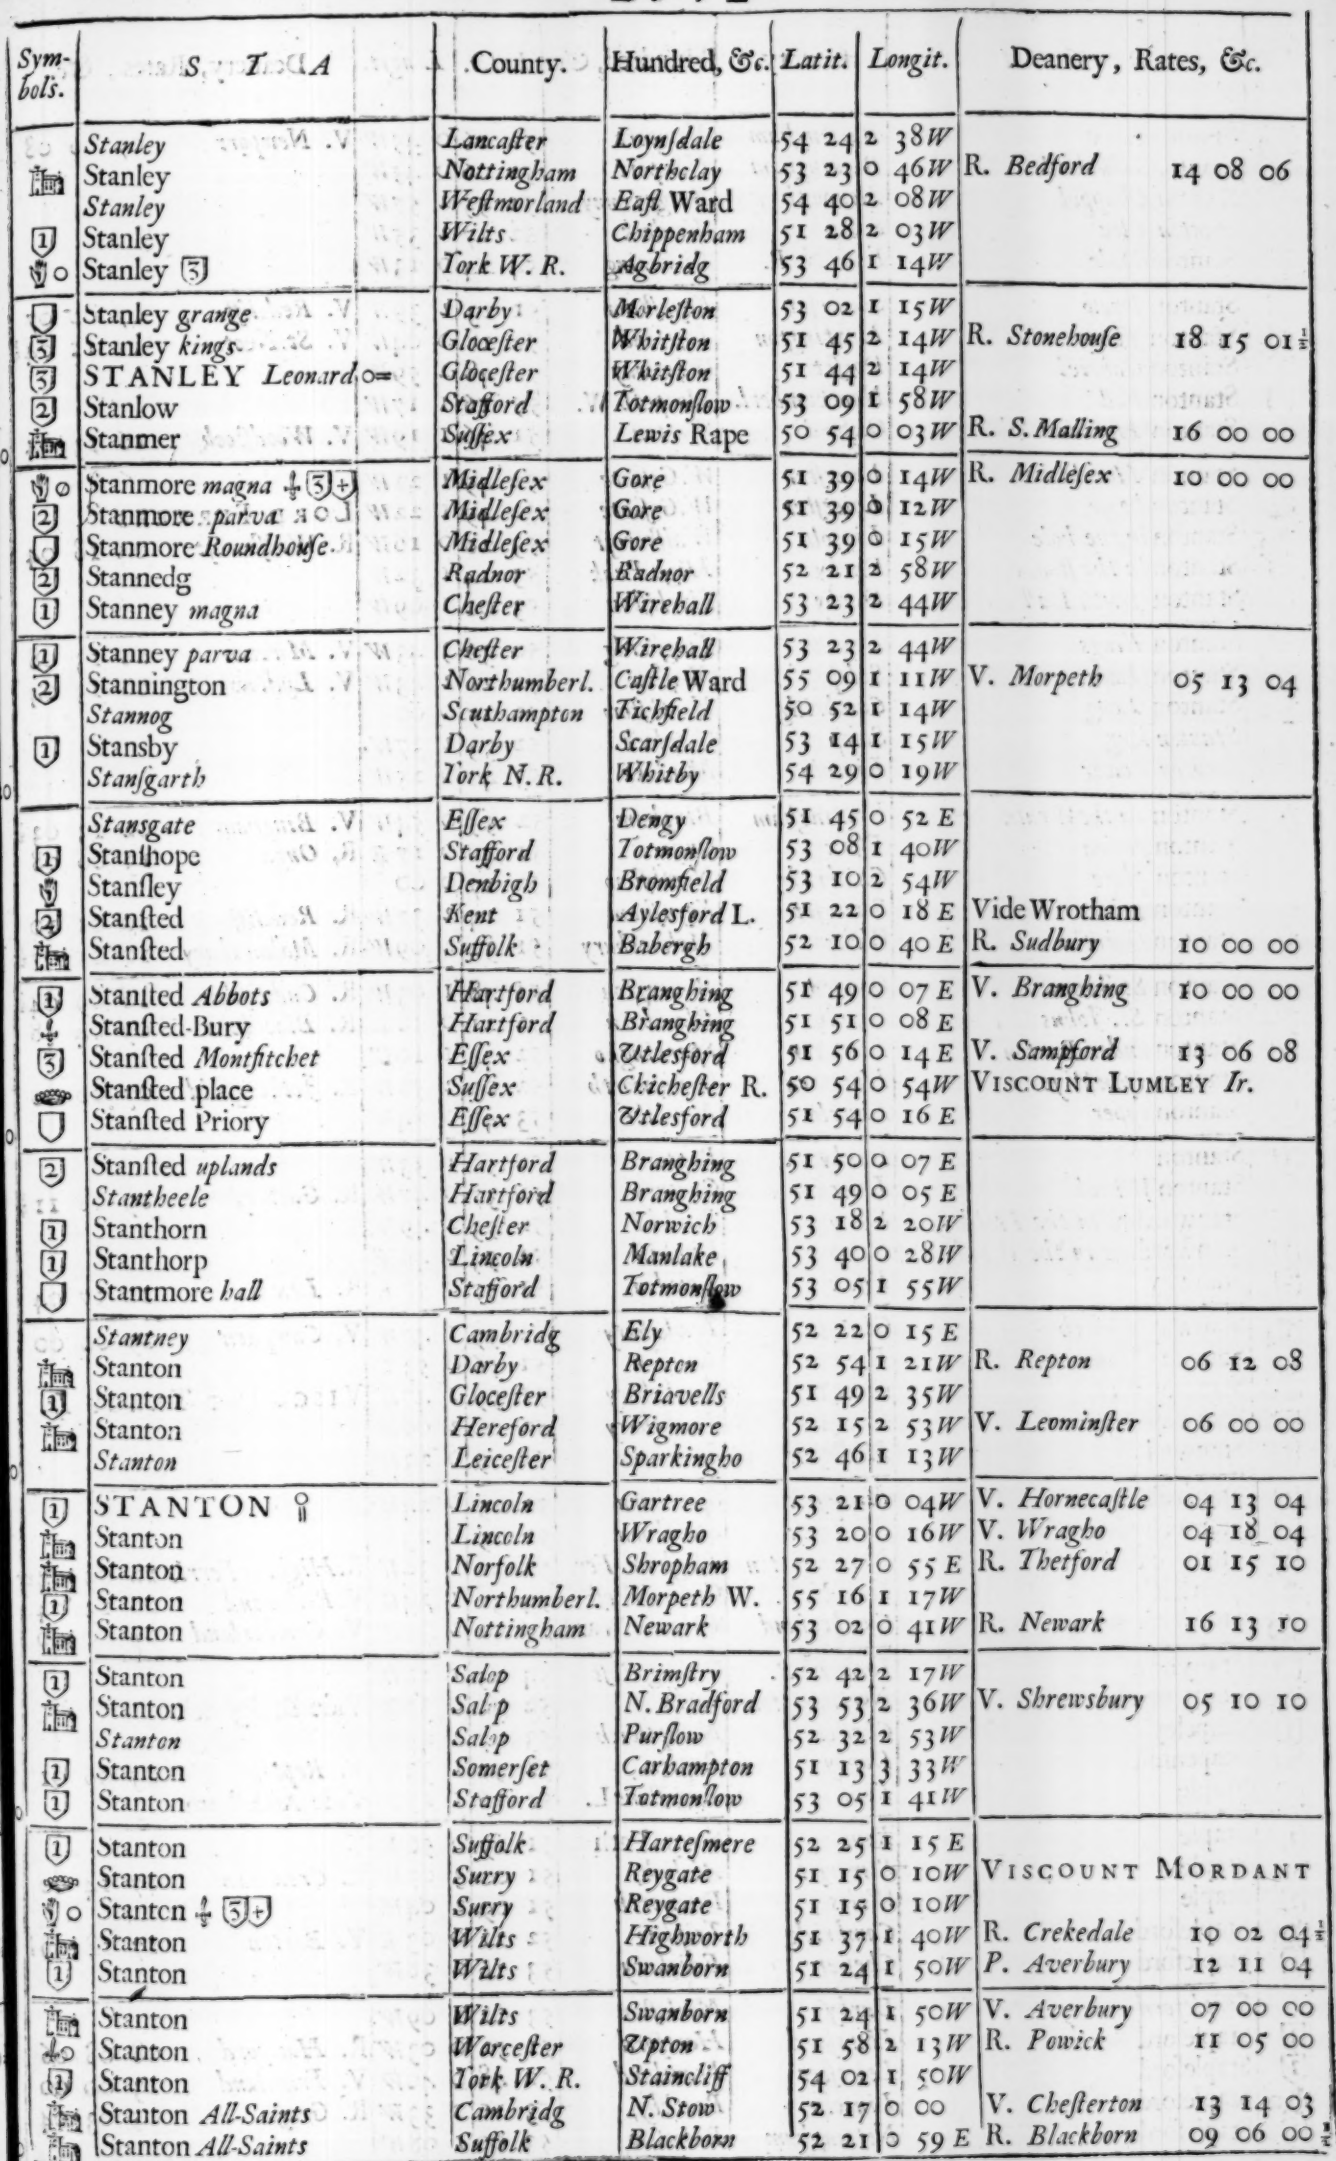 Symbols. S T A County. Hundred, &c. Latit. Longit. Deanery, Rates, &c.
Stanley Lancaſter Loynſdale 54 24 2 38 W
Stanley Nottingham Northclay 53 23 0 46 W R. Bedford 14 08 06
Stanley Weſtmorland Eaſt Ward 54 40 2 08 W
1 Stanley Wilts Chippenham 51 28 2 03 W
Stanley 3 York W. R. Agbridg 53 46 1 14 W
Stanley grange Darby Morleſton 53 02 1 15 W
3 Stanley kings Gloceſter Whitſton 51 45 2 14 W R. Stonehouſe 18 15 01 ½
3 STANLEY Leonard Gloceſter Whitſton 51 44 2 14 W
2 Stanlow Stafford Totmonſlow 53 09 1 58 W
Stanmer Suſſex Lewis Rape 50 54 0 03 W R. S. Malling 16 00 00
Stanmore magna 3 + Midleſex Gore 51 39 0 14 W R. Midleſex 10 00 00
2 Stanmore parva Midleſex Gore 51 39 0 12 W
Stanmore Roundhouſe Midleſex Gore 51 39 0 15 W
2 Stannedg Radnor Radnor 52 21 2 58 W
1 Stanney magna Cheſter Wirehall 53 23 2 44 W
1 Stanney parva Cheſter Wirehall 53 23 2 44 W
2 Stannington Northumberl. Caſtle Ward 55 09 1 11 W V. Morpeth 05 13 04
Stannog Southampton Tichfield 50 52 1 14 W
1 Stansby Darby Scarſdale 53 14 1 15 W
Stanſgarth York N. R. Whitby 54 29 0 19 W
Stansgate Eſſex Dengy 51 45 0 52 E
1 Stanſhope Stafford Totmonſlow 53 08 1 40 W
Stanſley Denbigh Bromfield 53 10 2 54 W
2 Stanſted Kent Aylesford L. 51 22 0 18 E Vide Wrotham
Stanſted Suffolk Babergh 52 10 0 40 E R. Sudbury 10 00 00
1 Stanſted Abbots Hartford Branghing 51 49 0 07 E V. Branghing 10 00 00
Stanſted-Bury Hartford Branghing 51 51 0 08 E
3 Stanſted Montfitchet Eſſex Utlesford 51 56 0 14 E V. Sampford 13 06 08
Stanſted place Suſſex Chicheſter R. 50 54 0 54 W VISCOUNT LUMLEY Ir.
Stanſted Priory Eſſex Utlesford 51 54 0 16 E
2 Stanſted uplands Hartford Branghing 51 50 0 07 E
Stantheele Hartford Branghing 51 49 0 05 E
1 Stanthorn Cheſter Norwich 53 18 2 20 W
1 Stanthorp Lincoln Manlake 53 40 0 28 W
Stantmore hall Stafford Totmonſlow 53 05 1 55 W
Stantney Cambridg Ely 52 22 0 15 E
Stanton Darby Repton 52 54 1 21 W R. Repton 06 12 08
1 Stanton Gloceſter Briavells 51 49 2 35 W
Stanton Hereford Wigmore 52 15 2 53 W V. Leominſter 06 00 00
Stanton Leiceſter Sparkingho 52 46 1 13 W
1 STANTON Lincoln Gartree 53 21 0 04 W V. Hornecaſtle 04 13 04
Stanton Lincoln Wragho 53 20 0 16 W V. Wragho 04 18 04
Stanton Norfolk Shropham 52 27 0 55 E R. Thetford 01 15 10
1 Stanton Northumberl. Morpeth W. 55 16 1 17 W
Stanton Nottingham Newark 53 02 0 41 W R. Newark 16 13 10
1 Stanton Salop Brimſtry 52 42 2 17 W
Stanton Salop N. Bradford 53 53 2 36 W V. Shrewsbury 05 10 10
Stanton Salop Purſlow 52 32 2 53 W
1 Stanton Somerſet Carhampton 51 13 3 33 W
1 Stanton Stafford Totmonſlow 53 05 1 41 W
1 Stanton Suffolk Harteſmere 52 25 1 15 E
Stanton Surry Reygate 51 15 0 10 W VISCOUNT MORDANT
Stanton 3 + Surry Reygate 51 15 0 10 W
Stanton Wilts Highworth 51 37 1 40 W R. Crekedale 10 02 04 ½
1 Stanton Wilts Swanborn 51 24 1 50 W P. Averbury 12 11 04
Stanton Wilts Swanborn 51 24 1 50 W V. Averbury 07 00 00
Stanton Worceſter Upton 51 58 2 13 W R. Powick 11 05 00
1 Stanton York W. R. Staincliff 54 02 1 50 W
Stanton All-Saints Cambridg N. Stow 52 17 0 00 V. Cheſterton 13 14 03
Stanton All-Saints Suffolk Blackborn 52 21 0 59 E R. Blackborn 09 06 00